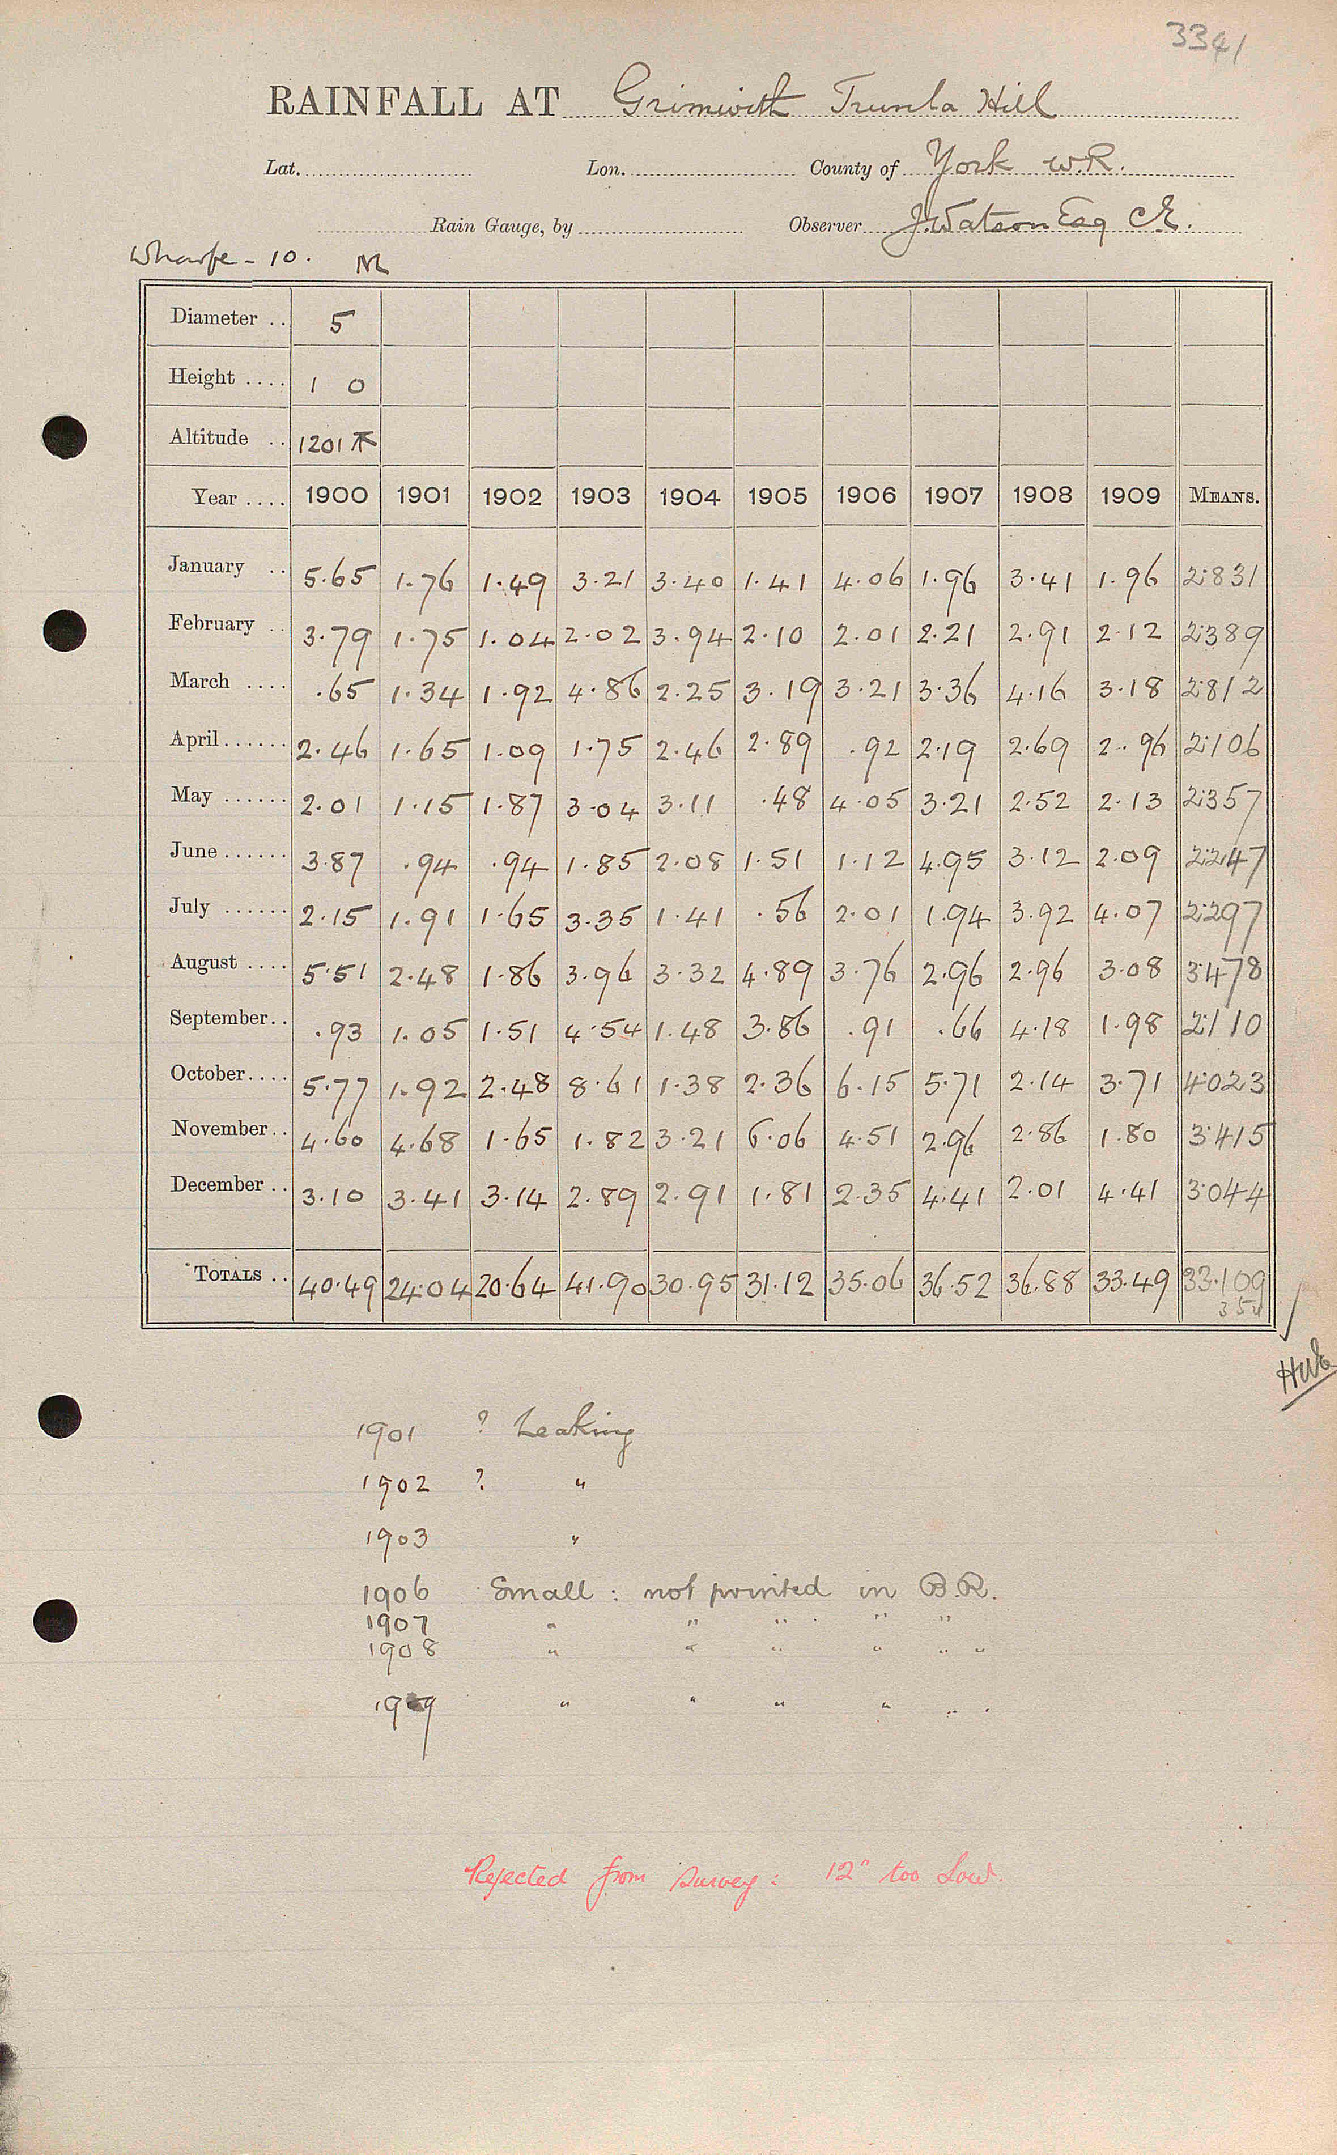 3341
RAINFALL AT Grimwith Trunla Hill
Lat. Lon. County of York W.R.
Rain Gauge, by Observer J. Watson Esq C.E.
Wharfe - 10. M
Diameter .. 5
Height .... 1 0
Altitude .. 1201
Year .... 1900 1901 1902 1903 1904 1905 1906 1907 1908 1909 MEANS.
January .. 5.65 1.76 1.49 3.21 3.40 1.41 4.06 1.96 3.41 1.96 2.831
February .. 3.79 1.75 1.04 2.02 3.94 2.10 2.01 2.21 2.91 2.12 2.389
March .... .65 1.34 1.92 4.86 2.25 3.19 3.21 3.36 4.16 3.18 2.812
April...... 2.46 1.65 1.09 1.75 2.46 2.89 .92 2.19 2.69 2.96 2.106
May ...... 2.01 1.15 1.87 3.04 3.11 .48 4.05 3.21 2.52 2.13 2.357
June ...... 3.87 .94 .94 1.85 2.08 1.51 1.12 4.95 3.12 2.09 2.247
July ...... 2.15 1.91 1.65 3.35 1.41 .56 2.01 1.94 3.92 4.07 2.297
August .... 5.51 2.48 1.86 3.96 3.32 4.89 3.76 2.96 2.96 3.08 3.478
September.. .93 1.05 1.51 4.54 1.48 3.86 .91 .66 4.18 1.98 2.110
October.... 5.77 1.92 2.48 8.61 1.38 2.36 6.15 5.71 2.14 3.71 4.023
November.. 4.60 4.68 1.65 1.82 3.21 6.06 4.51 2.96 2.86 1.80 3.415
December .. 3.10 3.41 3.14 2.89 2.91 1.81 2.35 4.41 2.01 4.41 3.044
TOTALS .. 40.49 24.04 20.64 41.90 30.95 31.12 35.06 36.52 36.88 33.49 33.109
1901 ? Leaking
1902 ? "
1903 "
1906 Small : not printed in B.R.
1907 " " " " "
1908 " " " " " "
1909 " " " " " "
Rejected from survey : 12" too low.